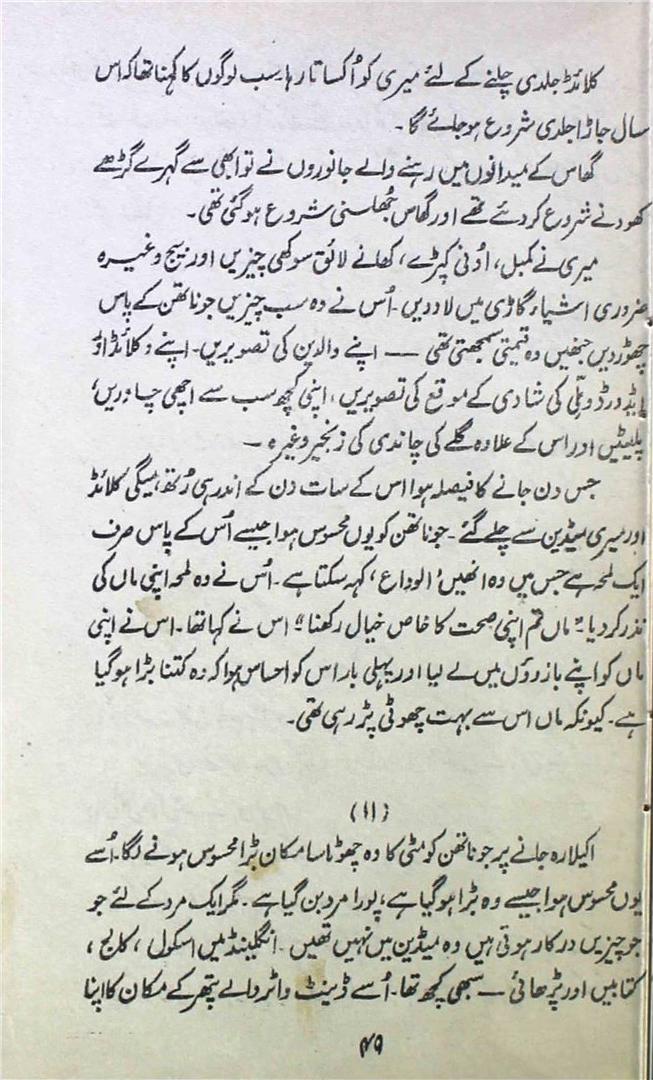 کلائڈ جلدی چلنے کے لئے میری کو اُکساتا رہا۔ سب لوگوں کا کہنا تھا کہ اس
سال جاڑا جلدی شروع ہو جائے گا۔
گھاس کے میدانوں میں رہنے والے جانوروں نے تو ابھی سے گہرے گڑھے
کھودنے شروع کر دئے تھے اور گھاس جُھلسنی شروع ہو گئی تھی۔
میری نے کمبل، اُونی کپڑے، کھانے لائق سوکھی چیزیں اور بیج وغیرہ
ضروری اشیاء گاڑی میں لاد دیں۔ اُس نے وہ سب چیزیں جوناتھن کے پاس
چھوڑ دیں جنھیں وہ قیمتی سمجھتی تھی — اپنے والدین کی تصویریں۔ اپنے و کلائڈ اور
ایڈورڈ و بلّی کی شادی کے موقع کی تصویریں، اپنی کچھ سب سے اچھی چادریں،
پلیٹیں اور اس کے علاوہ گلے کی چاندی کی زنجیر وغیرہ —
جس دن جانے کا فیصلہ ہوا اس کے سات دن کے اندر ہی رُتھ، پیگی کلائڈ
اور میری میڈین سے چلے گئے۔ جوناتھن کو یوں محسوس ہوا جیسے اُس کے پاس صرف
ایک لمحہ ہے جس میں وہ انھیں 'الوداع' کہہ سکتا ہے۔ اُس نے وہ لمحہ اپنی ماں کی
نذر کر دیا۔ "ماں تم اپنی صحت کا خاص خیال رکھنا" اس نے کہا تھا۔ اس نے اپنی
ماں کو اپنے بازوؤں میں لے لیا اور پہلی بار اس کو احساس ہوا کہ وہ کتنا بڑا ہو گیا
ہے۔ کیونکہ ماں اس سے بہت چھوٹی پڑ رہی تھی۔
(۱۱)
اکیلا رہ جانے پر جوناتھن کو مٹی کا وہ چھوٹا سا مکان بڑا محسوس ہونے لگا۔ اُسے
یوں محسوس ہوا جیسے وہ بڑا ہو گیا ہے، پورا مرد بن گیا ہے۔ مگر ایک مرد کے لئے جو
جو چیزیں درکار ہوتی ہیں وہ میڈین میں نہیں تھیں۔ انگلینڈ میں اسکول، کالج،
کتابیں اور پڑھائی — سبھی کچھ تھا۔ اُسے ڈینٹ واٹر والے پتھر کے مکان کا اپنا
۴۹